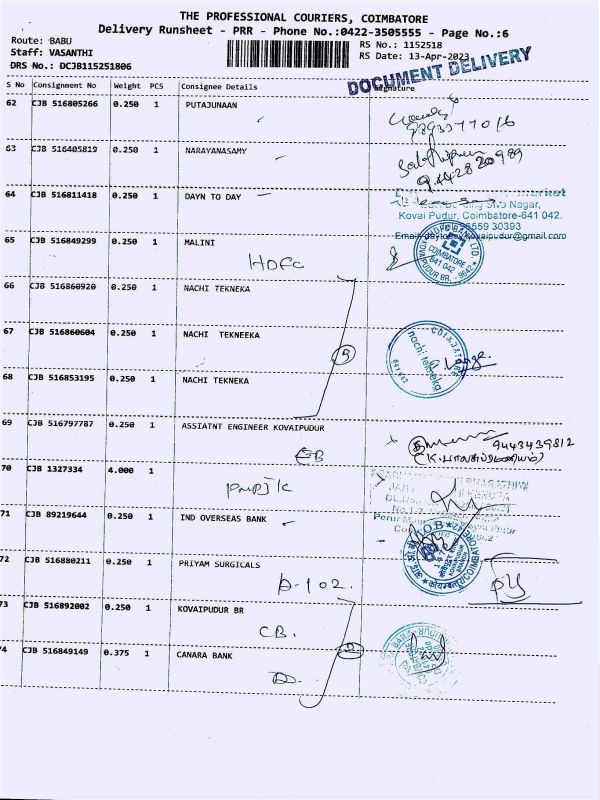 THE PROFESSIONAL COURIERS, COIMBATORE
Delivery Runsheet - PRR - Phone No.:0422-3505555 - Page No.:6
Route: BABU
RS No.: 1152518
Staff: VASANTHI
RS Date: 13-Apr-2023
DRS No.: DCJB115251806
DOCUMENT DELIVERY
S No Consignment No Weight PCS Consignee Details Signature
62 CJB 516805266 0.250 1 PUTAJUNAAN
63 CJB 516405819 0.250 1 NARAYANASAMY
9442820989
64 CJB 516811418 0.250 1 DAYN TO DAY
Siva Nagar,
Kovai Pudur, Coimbatore-641 042.
30393
65 CJB 516849299 0.250 1 MALINI
HDFC
COIMBATORE
641 042
KOVAIPUDUR BR.
66 CJB 516860920 0.250 1 NACHI TEKNEKA
67 CJB 516860604 0.250 1 NACHI TEKNEEKA
COIMBATORE
nachi tekneka
68 CJB 516853195 0.250 1 NACHI TEKNEKA
69 CJB 516797787 0.250 1 ASSIATNT ENGINEER KOVAIPUDUR
EB
9443439812
70 CJB 1327334 4.000 1
71 CJB 89219644 0.250 1 IND OVERSEAS BANK
I.O.B
72 CJB 516880211 0.250 1 PRIYAM SURGICALS
D-102.
73 CJB 516892002 0.250 1 KOVAIPUDUR BR
CB.
74 CJB 516849149 0.375 1 CANARA BANK